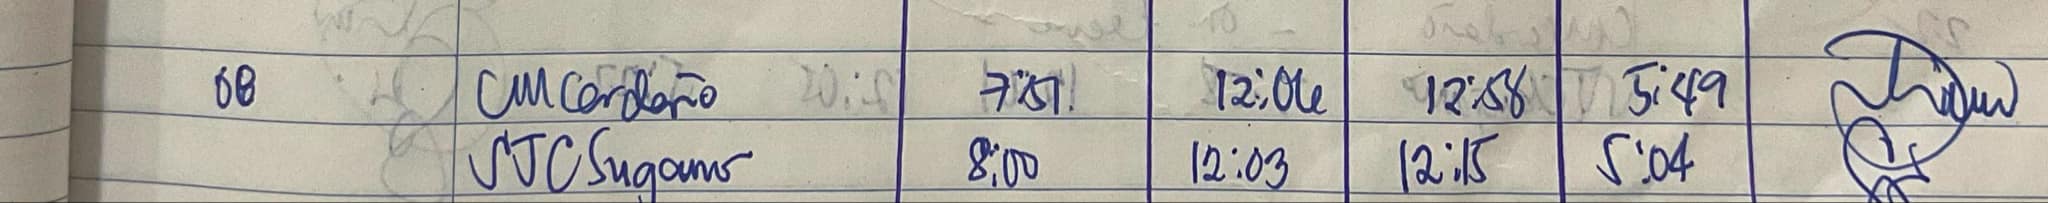 08 CM Cardeño 7:51 12:06 12:58 5:49
STC Sugano 8:00 12:03 12:15 5:04